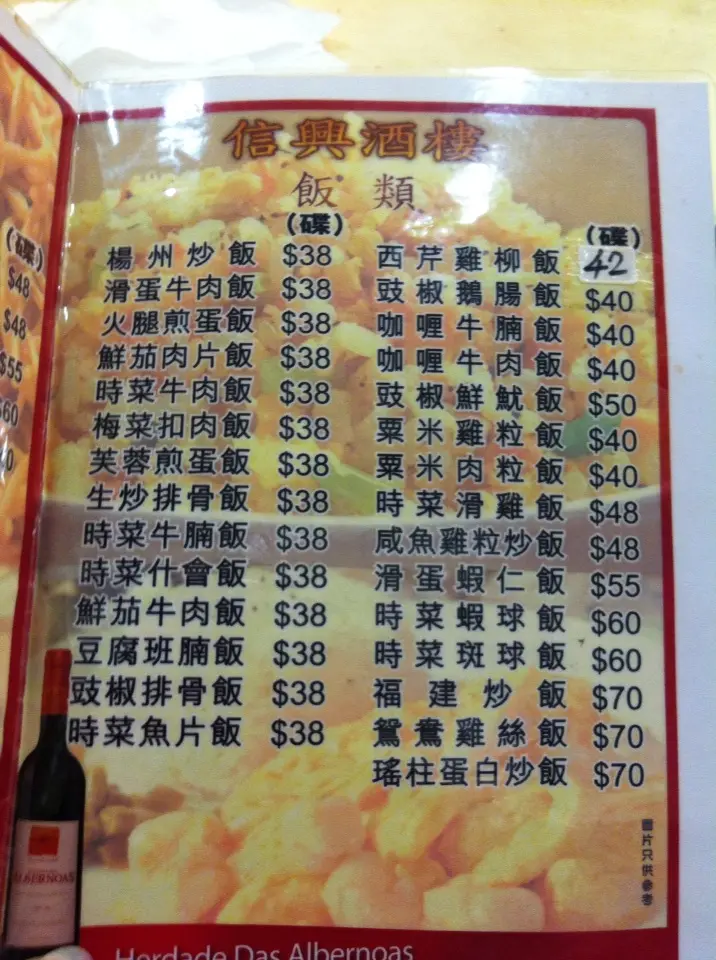 信興酒樓
飯類
(碟)
楊州炒飯 $38
滑蛋牛肉飯 $38
火腿煎蛋飯 $38
鮮茄肉片飯 $38
時菜牛肉飯 $38
梅菜扣肉飯 $38
芙蓉煎蛋飯 $38
生炒排骨飯 $38
時菜牛腩飯 $38
時菜什會飯 $38
鮮茄牛肉飯 $38
豆腐班腩飯 $38
豉椒排骨飯 $38
時菜魚片飯 $38
(碟)
西芹雞柳飯 42
豉椒鵝腸飯 $40
咖喱牛腩飯 $40
咖喱牛肉飯 $40
豉椒鮮魷飯 $50
粟米雞粒飯 $40
粟米肉粒飯 $40
時菜滑雞飯 $48
咸魚雞粒炒飯 $48
滑蛋蝦仁飯 $55
時菜蝦球飯 $60
時菜斑球飯 $60
福建炒飯 $70
鴛鴦雞絲飯 $70
瑤柱蛋白炒飯 $70
圖片只供參考
(碟)
$48
$48
$55
ALBERNOAS
Herdade Das Albernoas